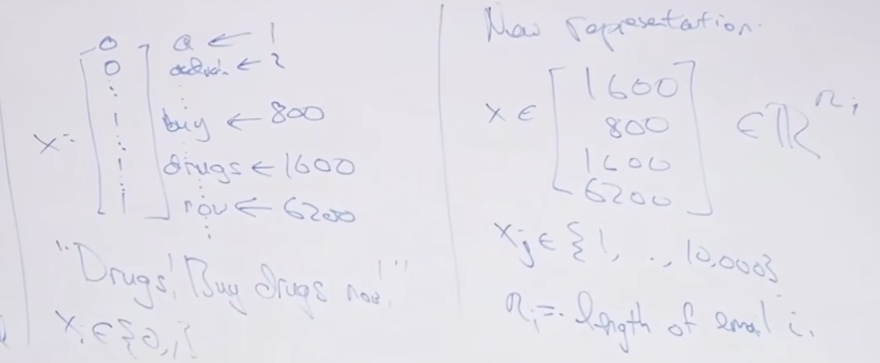 x = [ 0 a ← 1
0 ← 2
⋮
1 buy ← 800
⋮
1 drugs ← 1600
⋮
1 ] now ← 6200
⋮
"Drugs! Buy drugs now!"
x_i ∈ {0,1}
New representation.
x ∈ [ 1600
800
1600
6200 ] ∈ ℝ^{n_i}
x_j ∈ {1, .., 10,000}
n_i = length of email i.